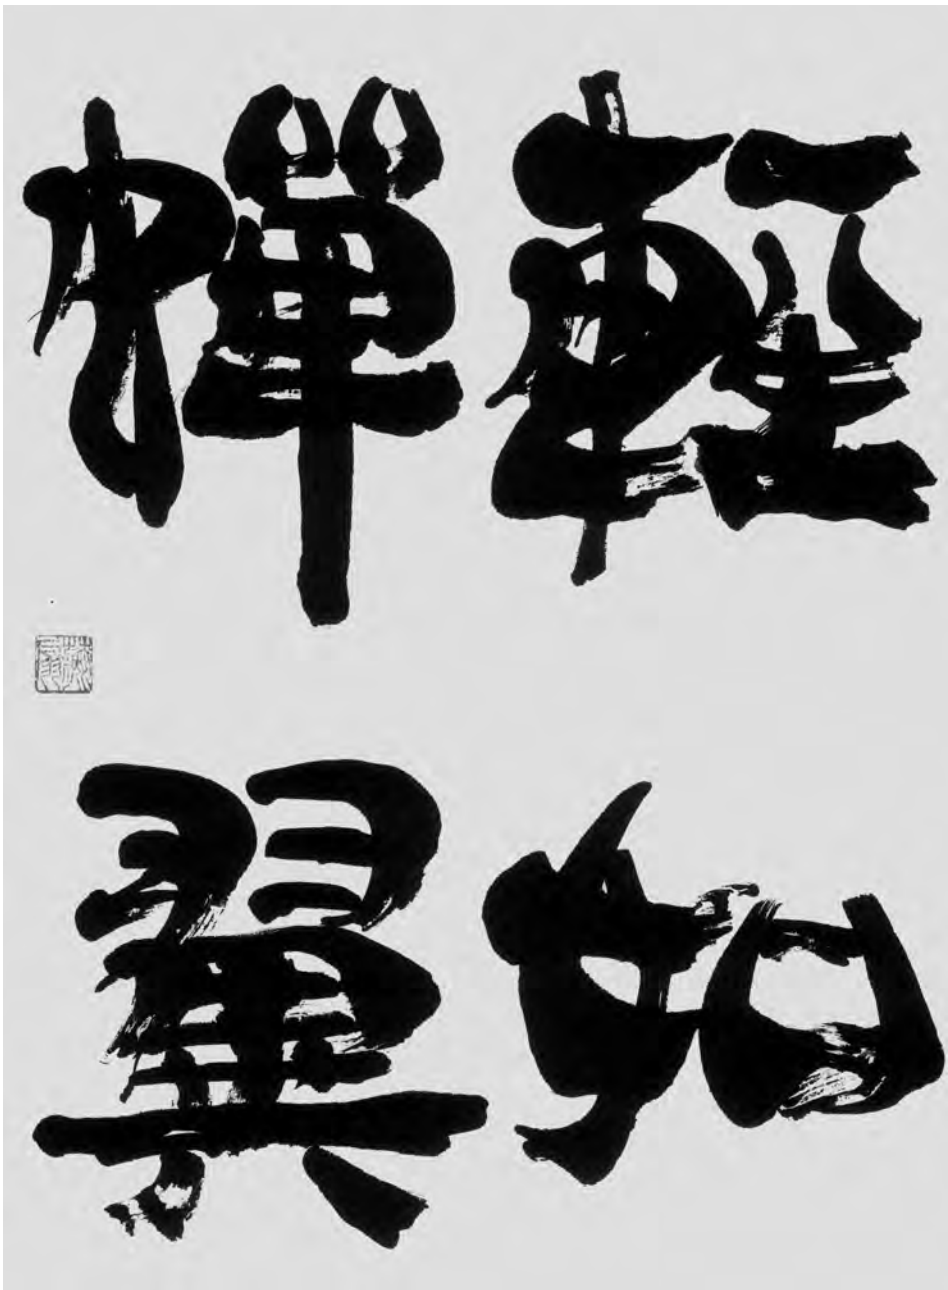 輕如
蟬翼